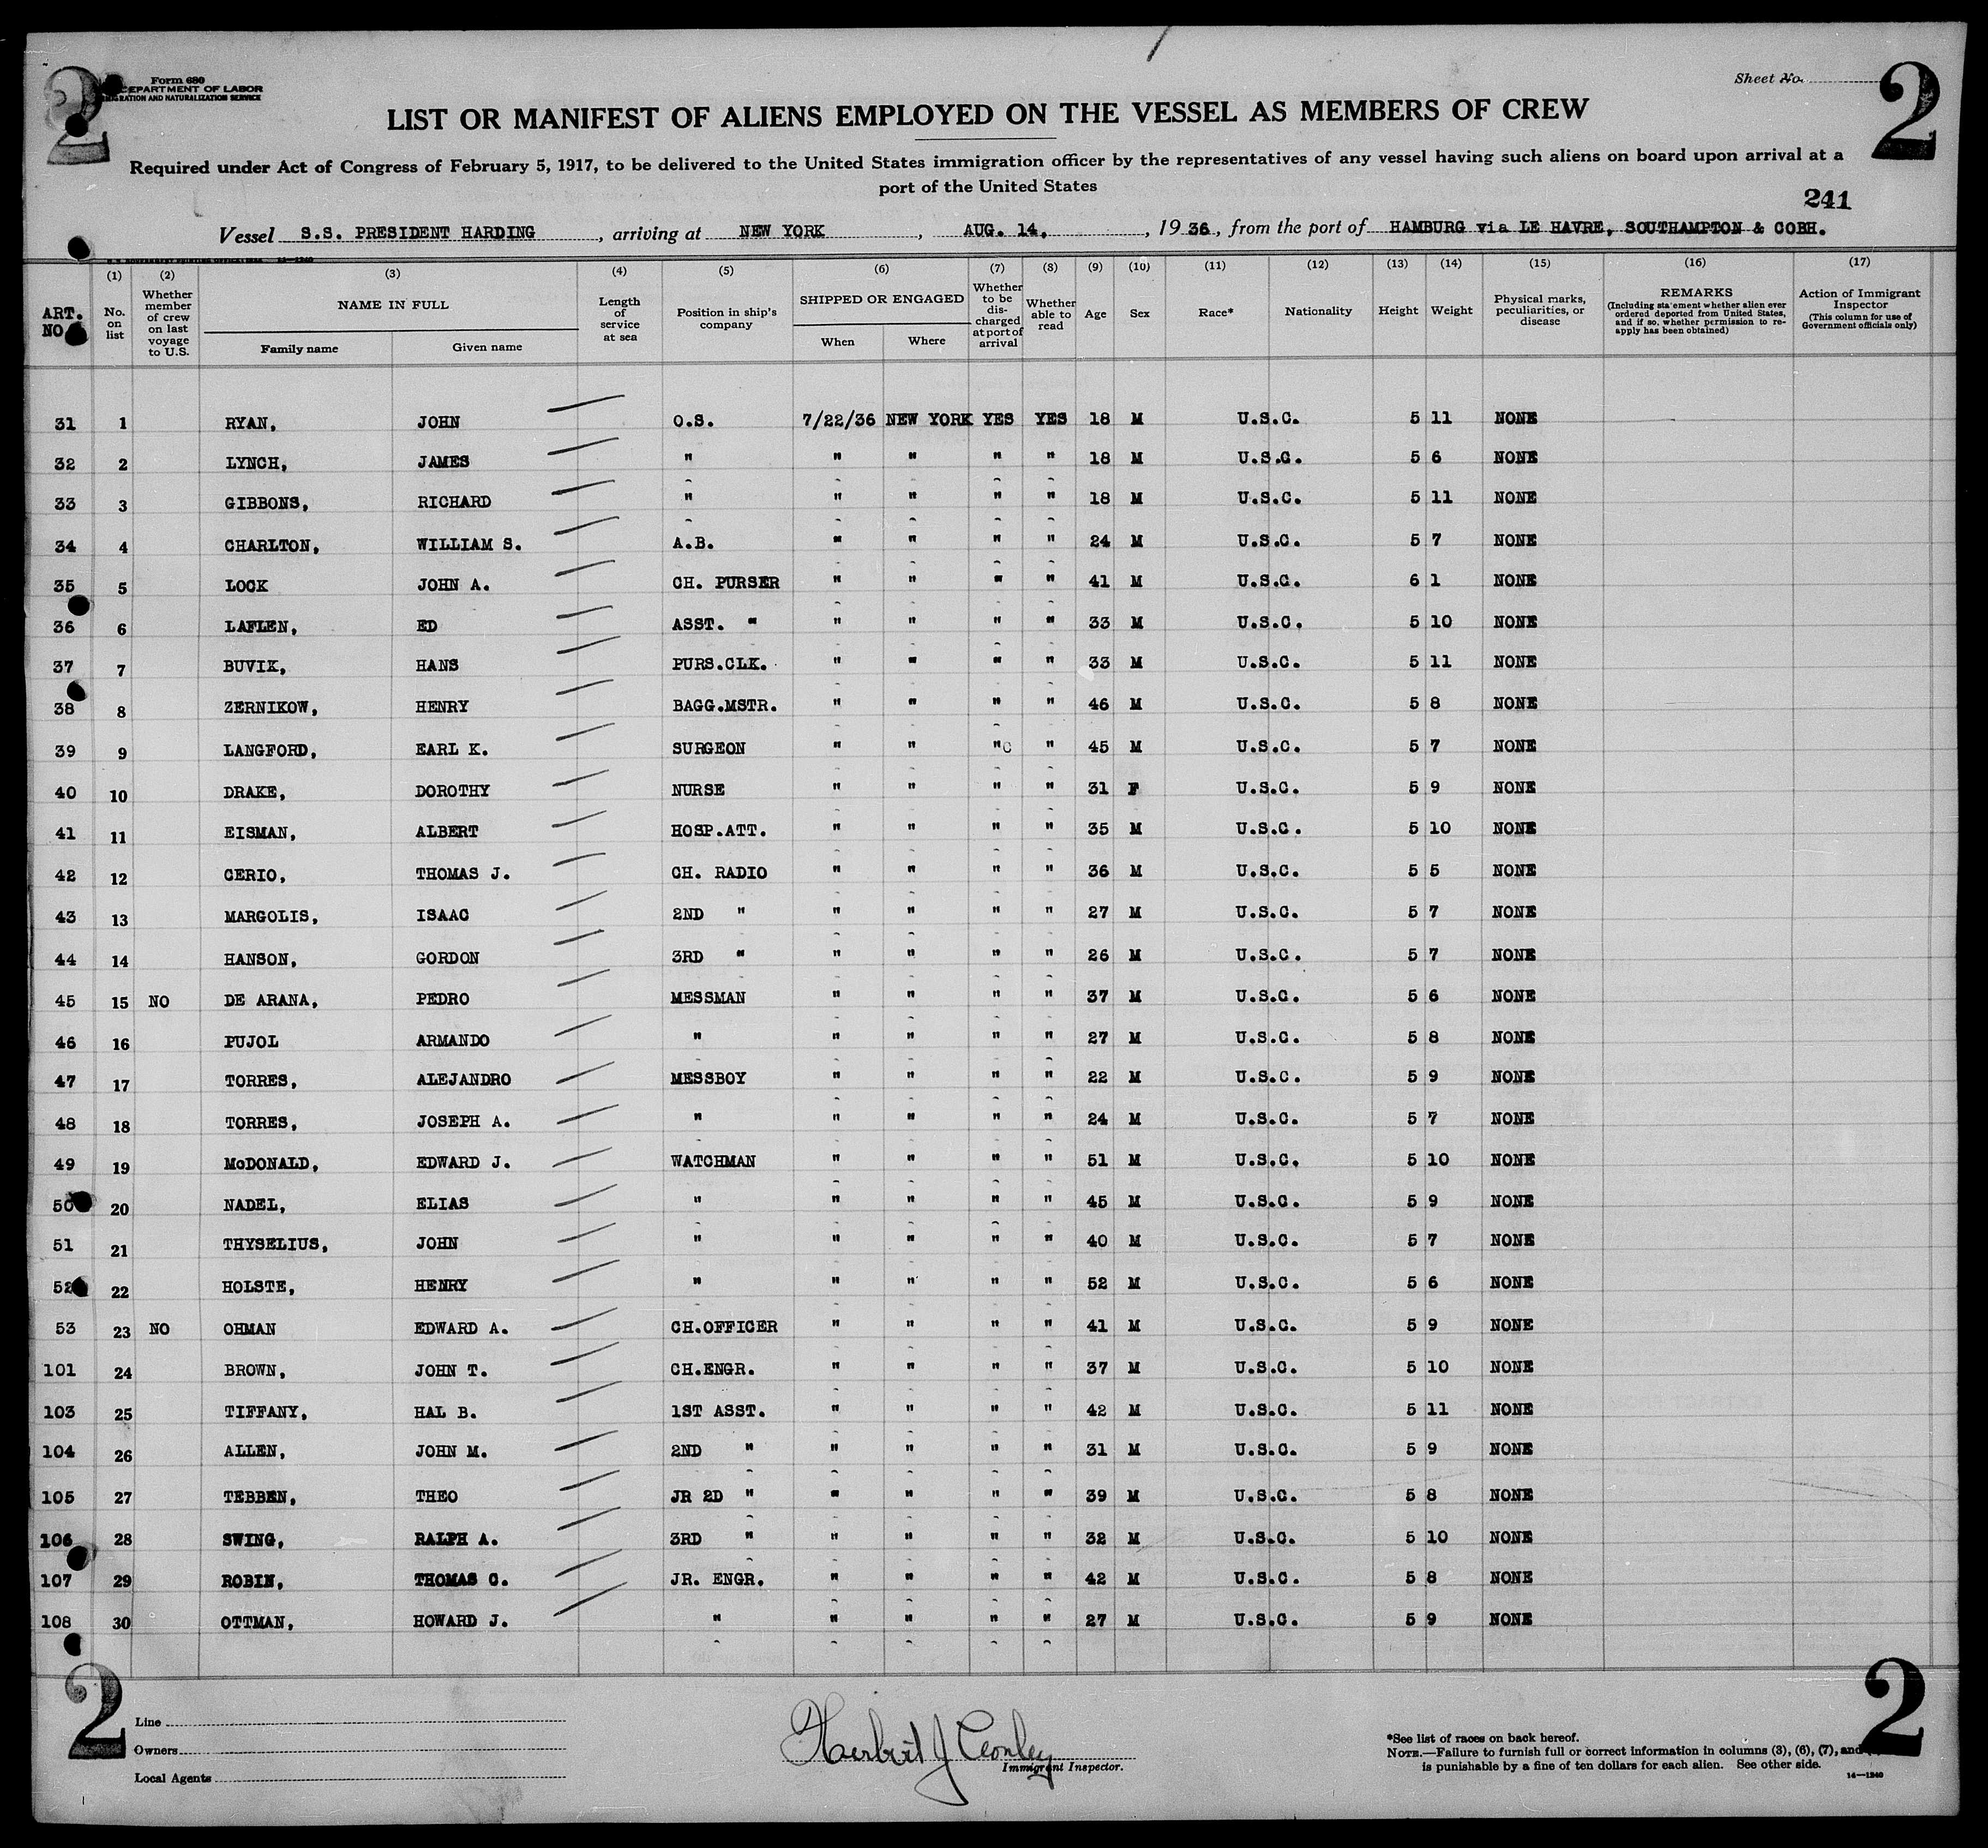 2
Form 680
DEPARTMENT OF LABOR
IMMIGRATION AND NATURALIZATION SERVICE
Sheet No.
2
LIST OR MANIFEST OF ALIENS EMPLOYED ON THE VESSEL AS MEMBERS OF CREW
Required under Act of Congress of February 5, 1917, to be delivered to the United States immigration officer by the representatives of any vessel having such aliens on board upon arrival at a
port of the United States
241
Vessel S.S. PRESIDENT HARDING, arriving at NEW YORK, AUG. 14, 1936, from the port of HAMBURG via LE HAVRE, SOUTHAMPTON & COBH.
(1) (2) (3) (4) (5) (6) (7) (8) (9) (10) (11) (12) (13) (14) (15) (16) (17)
ART. NO No. on list Whether member of crew on last voyage to U.S. NAME IN FULL Family name Given name Length of service at sea Position in ship's company SHIPPED OR ENGAGED When Where Whether to be discharged at port of arrival Whether able to read Age Sex Race* Nationality Height Weight Physical marks, peculiarities, or disease REMARKS (Including statement whether alien ever ordered deported from United States, and if so, whether permission to reapply has been obtained) Action of Immigrant Inspector (This column for use of Government officials only)
31 1 RYAN, JOHN O.S. 7/22/36 NEW YORK YES YES 18 M U.S.C. 5 11 NONE
32 2 LYNCH, JAMES " " " " " 18 M U.S.C. 5 6 NONE
33 3 GIBBONS, RICHARD " " " " " 18 M U.S.C. 5 11 NONE
34 4 CHARLTON, WILLIAM S. A.B. " " " " 24 M U.S.C. 5 7 NONE
35 5 LOCK JOHN A. CH. PURSER " " " " 41 M U.S.C. 6 1 NONE
36 6 LAFLEN, ED ASST. " " " " " 33 M U.S.C. 5 10 NONE
37 7 BUVIK, HANS PURS.CLK. " " " " 33 M U.S.C. 5 11 NONE
38 8 ZERNIKOW, HENRY BAGG.MSTR. " " " " 46 M U.S.C. 5 8 NONE
39 9 LANGFORD, EARL K. SURGEON " " " " 45 M U.S.C. 5 7 NONE
40 10 DRAKE, DOROTHY NURSE " " " " 31 F U.S.C. 5 9 NONE
41 11 EISMAN, ALBERT HOSP.ATT. " " " " 35 M U.S.C. 5 10 NONE
42 12 CERIO, THOMAS J. CH. RADIO " " " " 36 M U.S.C. 5 5 NONE
43 13 MARGOLIS, ISAAC 2ND " " " " " 27 M U.S.C. 5 7 NONE
44 14 HANSON, GORDON 3RD " " " " " 26 M U.S.C. 5 7 NONE
45 15 NO DE ARANA, PEDRO MESSMAN " " " " 37 M U.S.C. 5 6 NONE
46 16 PUJOL ARMANDO " " " " " 27 M U.S.C. 5 8 NONE
47 17 TORRES, ALEJANDRO MESSBOY " " " " 22 M U.S.C. 5 9 NONE
48 18 TORRES, JOSEPH A. " " " " " 24 M U.S.C. 5 7 NONE
49 19 McDONALD, EDWARD J. WATCHMAN " " " " 51 M U.S.C. 5 10 NONE
50 20 NADEL, ELIAS " " " " " 45 M U.S.C. 5 9 NONE
51 21 THYSELIUS, JOHN " " " " " 40 M U.S.C. 5 7 NONE
52 22 HOLSTE, HENRY " " " " " 52 M U.S.C. 5 6 NONE
53 23 NO OHMAN EDWARD A. CH.OFFICER " " " " 41 M U.S.C. 5 9 NONE
101 24 BROWN, JOHN T. CH.ENGR. " " " " 37 M U.S.C. 5 10 NONE
103 25 TIFFANY, HAL B. 1ST ASST. " " " " 42 M U.S.C. 5 11 NONE
104 26 ALLEN, JOHN M. 2ND " " " " " 31 M U.S.C. 5 9 NONE
105 27 TEBBEN, THEO JR 2D " " " " " 39 M U.S.C. 5 8 NONE
106 28 SWING, RALPH A. 3RD " " " " " 32 M U.S.C. 5 10 NONE
107 29 ROBIN, THOMAS C. JR. ENGR. " " " " 42 M U.S.C. 5 8 NONE
108 30 OTTMAN, HOWARD J. " " " " " 27 M U.S.C. 5 9 NONE
2
Line
Owners
Local Agents
Herbert J Conley
Immigrant Inspector.
*See list of races on back hereof.
NOTE.—Failure to furnish full or correct information in columns (3), (6), (7), and
is punishable by a fine of ten dollars for each alien. See other side.
14—1240
2